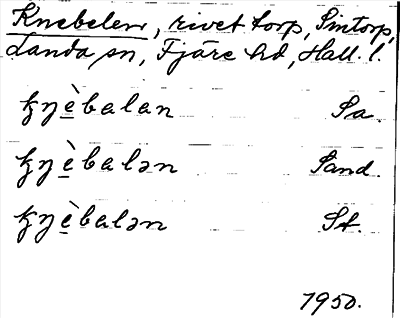 Knebelen, rivet torp, Sintorp,
Landa sn, Fjäre hd, Hall. l.
kŋèbalan Sa.
kŋèbalən Sand.
kŋèbalən St.
1950.